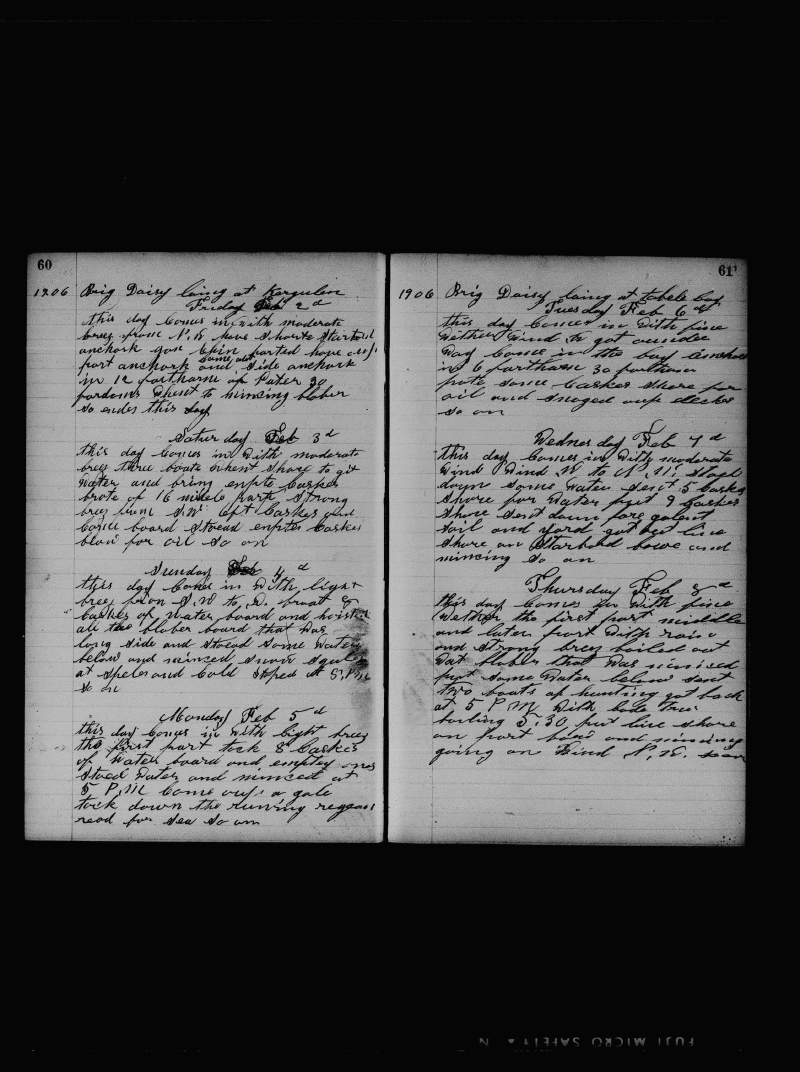 60
1906 Brig Daisy laing at Kerguelen
Friday Feb 2 d
this day Comes in with moderate
brees from N.W have Shorte Starbord
anchork gon Chin parted hope
port anchork and Side anchork
in 12 farthorm of Water 30
Whent to mincing blober
so endes this day
Saturday Feb 3 d
this day Comes in With moderate
brees three boats Whent Shore to git
Water and bring enpte Caskes
brote of 16 midele parte Strong
brees from S.W. left Caskes and
Come board Stoead enptes Caskes
blow for oil So on
Sunday Feb 4 d
this day Comes in With light
brees from S.W to S. broat 8
Caskes of Water board and hoisted
all the blober board that Was
long Side and Stoead Some Water
below and minced Snow Squls
at Speles and Cold Stped at 5. P.M
So on
Monday Feb 5 d
this day Comes in With light brees
the first part took 8 Caskes
of Water board and emptey ones
Stoed Water and minced at
5 P.M Come a gale
tock down the running
read for Sea So on
61
1906 Brig Daisy laing at tabele bay
Tuesday Feb 6 d
this day Comes in With fine
Wether Wind to got
Way Comes in the bay
in 6 farthorm 30 farthorm
pote Some Caskes Shore for
oil and Snoged oup deckes
so on
Wednesday Feb 7 d
this day Comes in With moderate
Wind Wind W to N.W. Stoed
down Some Water Sent 5 Caskes
Shore for Water put 9 Caskes
Shore Sent down fore galent
Soil and yord got out line
Shore on Starbord bowe and
mincing So on
Thursday Feb 8 d
this day Comes in With fine
Wether the first part middle
and later part With rain
and Strong brees boiled out
Wat blober that Was minced
put Some Water below Sent
two boats of hunting got back
at 5 P.M With
boiling 5-30 put line Shore
on port bow and mincing
going on Wind N.W. So on
FUJI MICRO SAFETY ▲ N